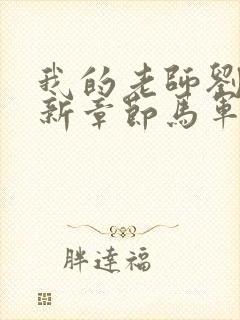 我的老師劉
新章節馬車
胖達福